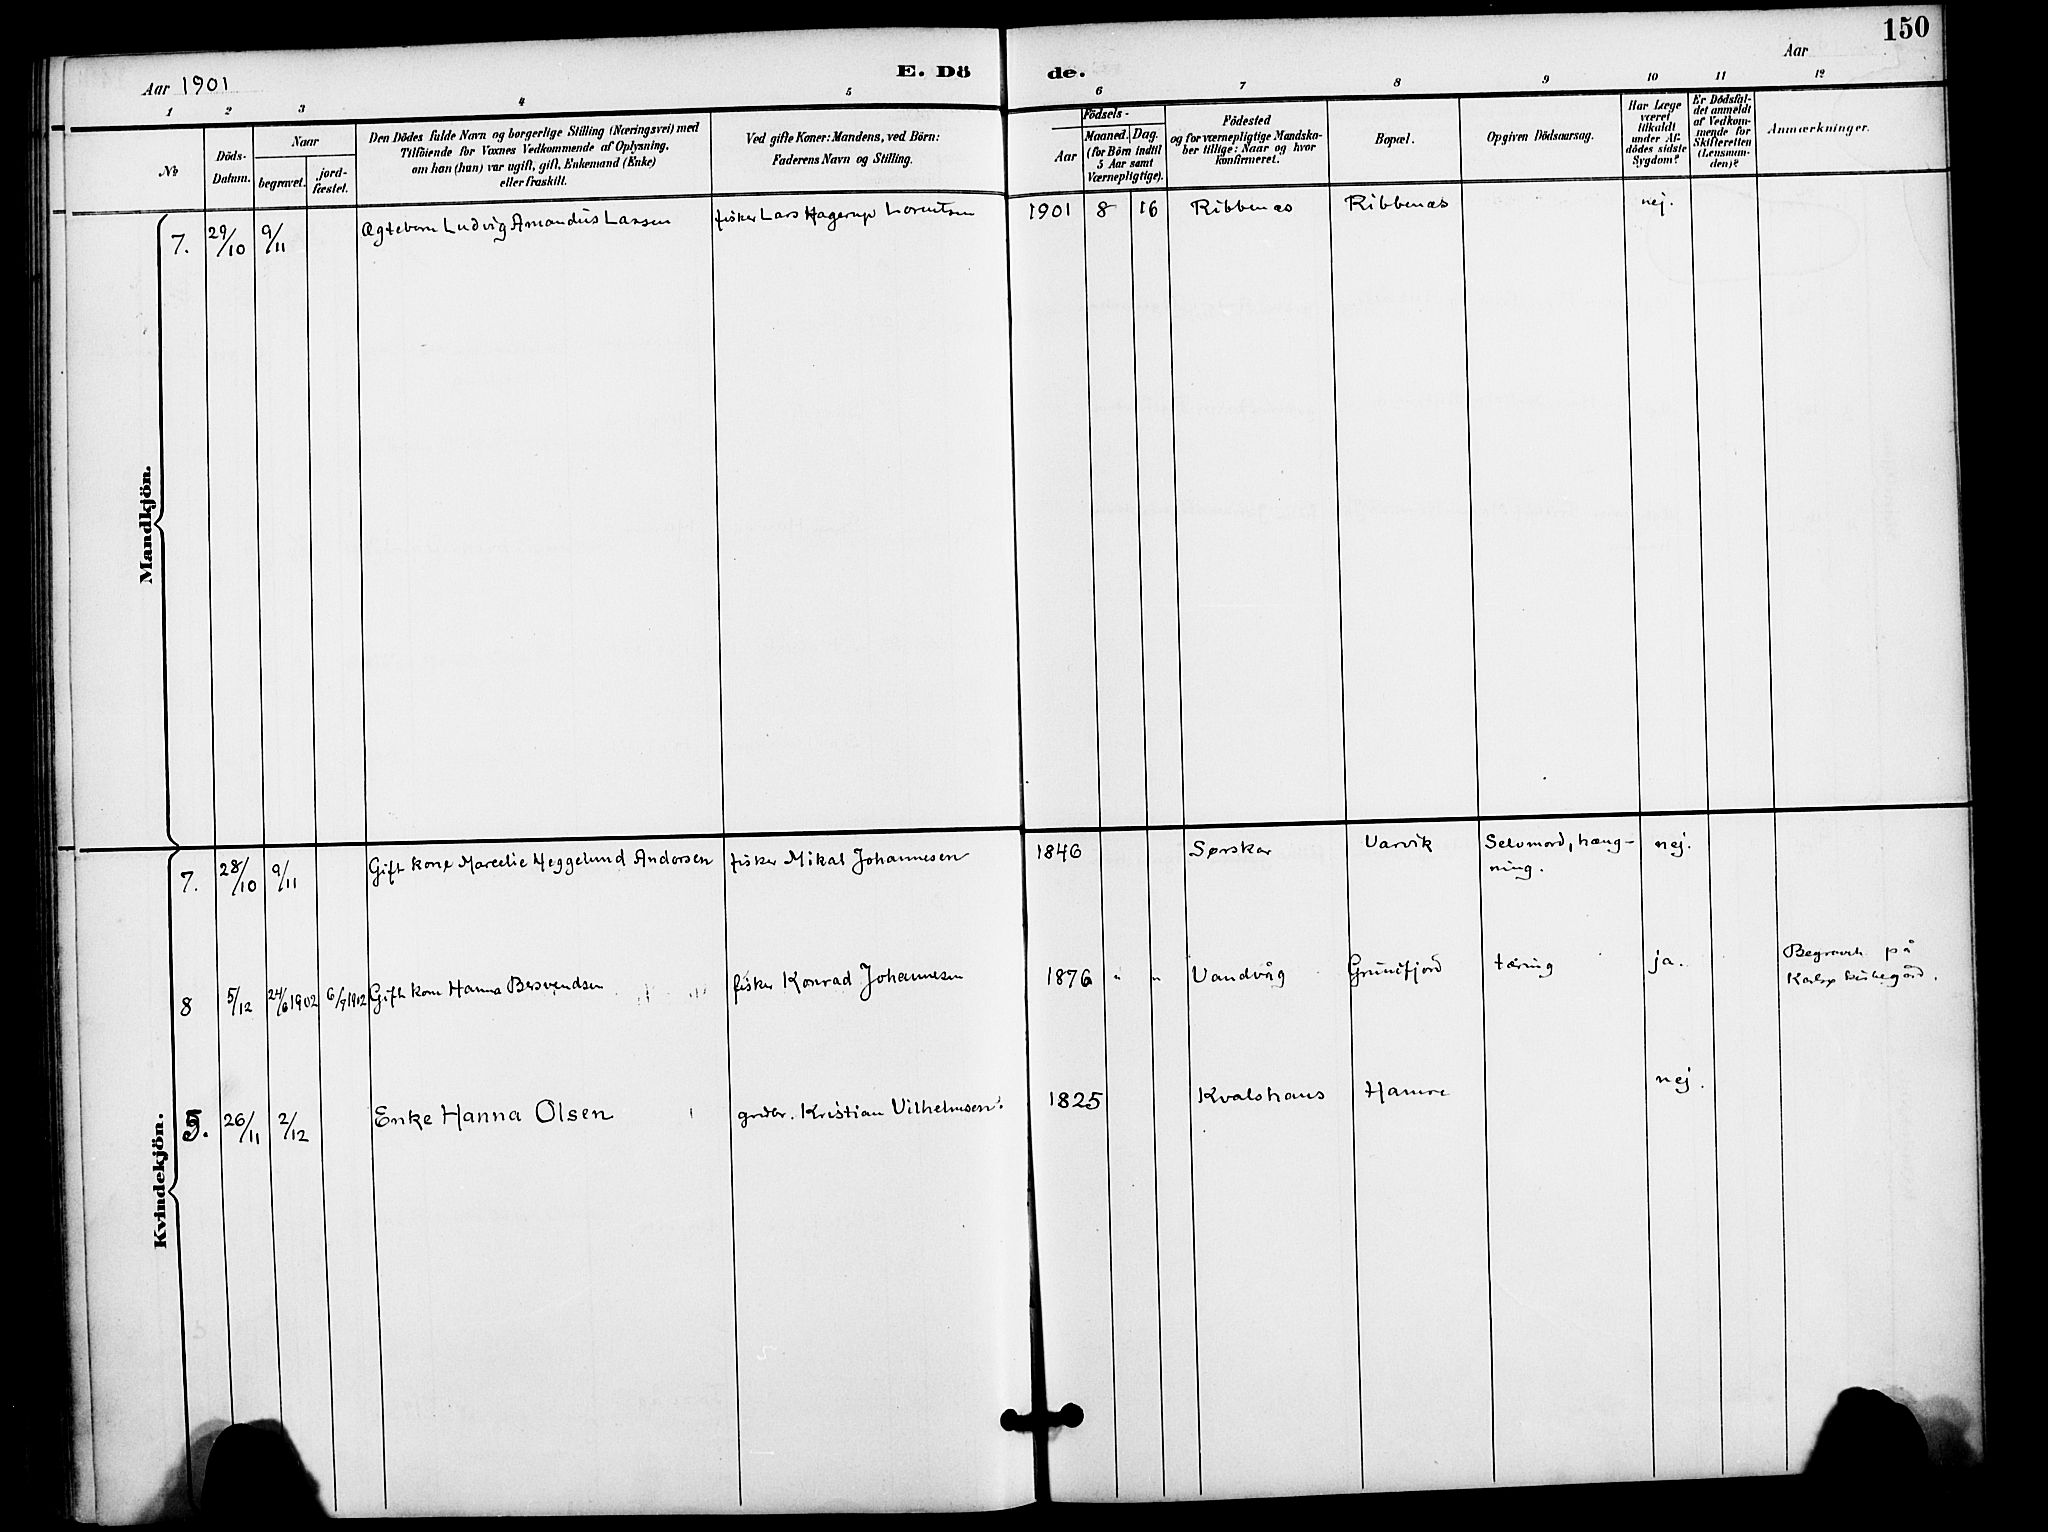 150
Aar 1901
E. Dö
de.
Aar
1 2 3 4 5 6 7 8 9 10 11 12
No
Döds-
Datum.
Naar
begravet.
jord-
fæstet.
Den Dödes fulde Navn og borgerlige Stilling (Næringsvei) med
Tilföiende for Voxnes Vedkommende af Oplysning,
om han (hun) var ugift, gift, Enkemand (Enke)
eller fraskilt.
Ved gifte Koner: Mandens, ved Börn:
Faderens Navn og Stilling.
Födsels-
Aar
Maaned. Dag.
(for Börn indtil
5 Aar samt
Værnepligtige).
Födested
og for værnepligtige Mandska-
ber tillige: Naar og hvor
konfirmeret.
Bopæl.
Opgiven Dödsaarsag.
Har Læge
været
tilkaldt
under Af-
dödes sidste
Sygdom?
Er Dödsfal-
det anmeldt
af Vedkom-
mende for
Skifteretten
(Lensman-
den)?
Anmærkninger.
Mandkjön.
7. 29/10 9/11 Ægtebarn Ludvig Amandus Larsen fisker Lars Hagerup Lorentsen 1901 8 16 Ribbenæs Ribbenæs nej.
Kvindekjön.
7. 28/10 9/11 Gift kone Marcelie Heggelund Andersen fisker Mikal Johannesen 1846 Sørskar Varvik Selvmord, hæng- nej.
ning.
8 5/12 24/6 1902 6/7 1902 Gift kone Hanna Bersvendsen fisker Konrad Johannesen 1876 " " Vandvåg Grunfjord tæring ja. Begravet på
Karlsø kirkegård.
9. 26/11 2/12 Enke Hanna Olsen grdbr. Kristian Vilhelmsen. 1825 Kvalshaus Hamre nej.